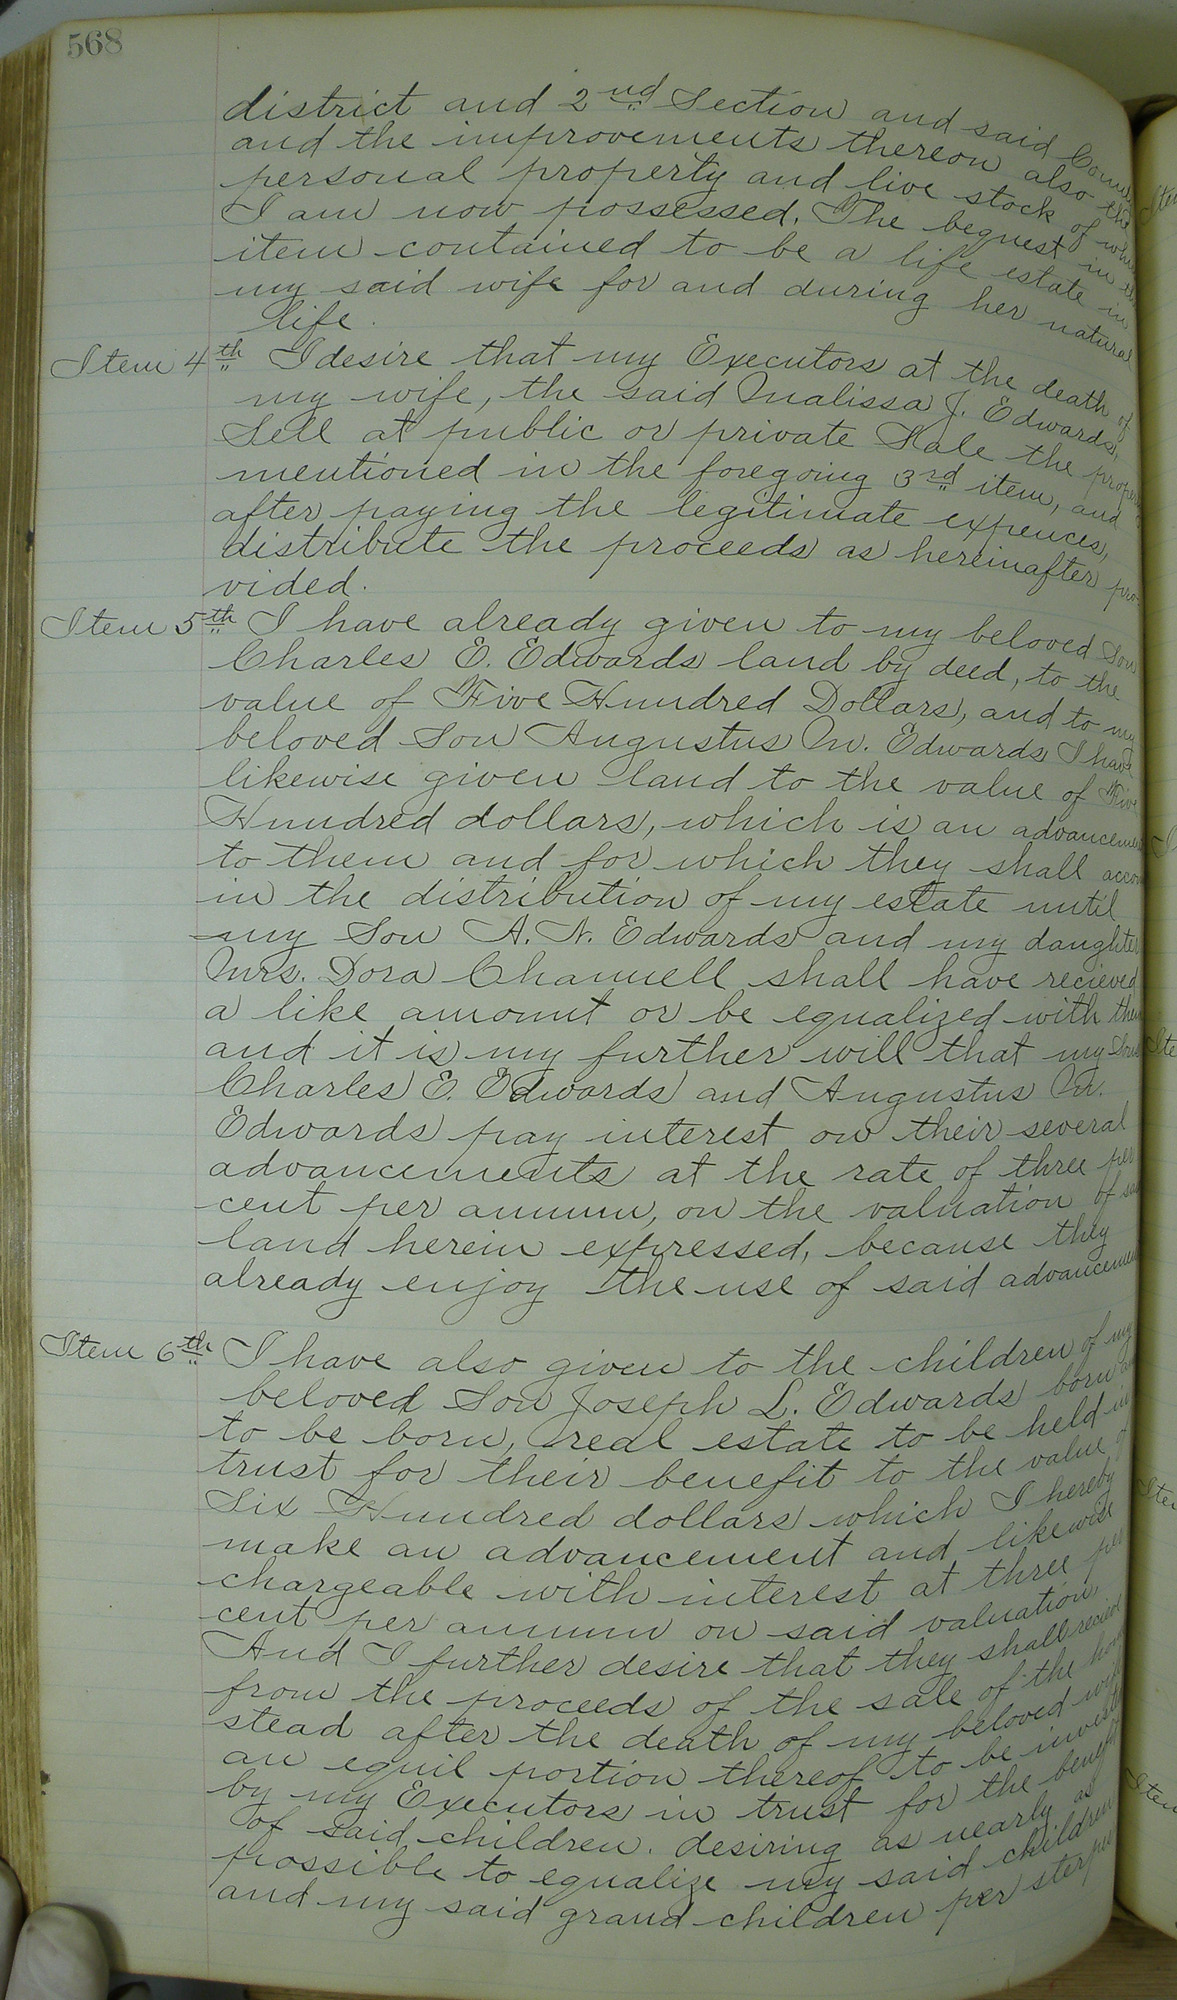 568
district and 2nd Section and said
and the improvements thereon also the
personal property and live stock of
I am now possessed. The bequest in
item contained to be a life estate in
my said wife for and during her natural
life.
Item 4th I desire that my Executors at the death of
my wife, the said Malissa J. Edwards,
Sell at public or private Sale the
mentioned in the foregoing 3rd item, and
after paying the legitimate expences,
distribute the proceeds as hereinafter pro-
vided.
Item 5th I have already given to my beloved Son
Charles E. Edwards land by deed, to the
value of Five Hundred Dollars, and to my
beloved Son Augustus M. Edwards I have
likewise given land to the value of Five
Hundred dollars, which is an
to them and for which they shall
in the distribution of my estate until
my Son A. N. Edwards and my daughter
Mrs. Dora Channell shall have recieved
a like amount or be equalized with them
and it is my further will that my Sons
Charles E. Edwards and Augustus M.
Edwards pay interest on their several
advancements at the rate of three per
cent per annum, on the valuation of
land herein expressed, because they
already enjoy the use of said
Item 6th I have also given to the children of my
beloved Son Joseph L. Edwards born
to be born, real estate to be held in
trust for their benefit to the value of
Six Hundred dollars which I hereby
make an advancement and likewise
chargeable with interest at three per
cent per annum on said valuation,
And I further desire that they shall
from the proceeds of the sale of the
stead after the death of my beloved wife
an equil portion thereof to be
by my Executors in trust for the benefit
of said children. desiring as nearly as
possible to equalize my said children
and my said grand children per